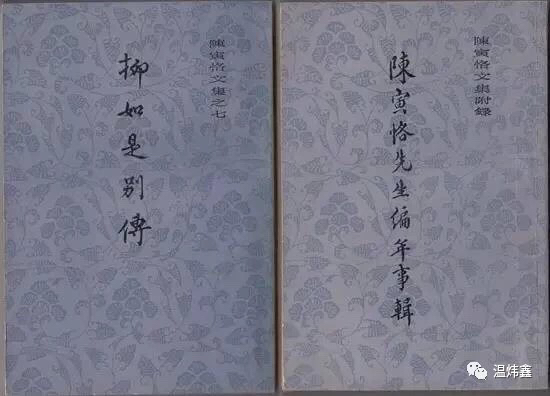 陳寅恪文集之七
柳如是别傳
陳寅恪文集附録
陳寅恪先生编年事輯
温炜鑫